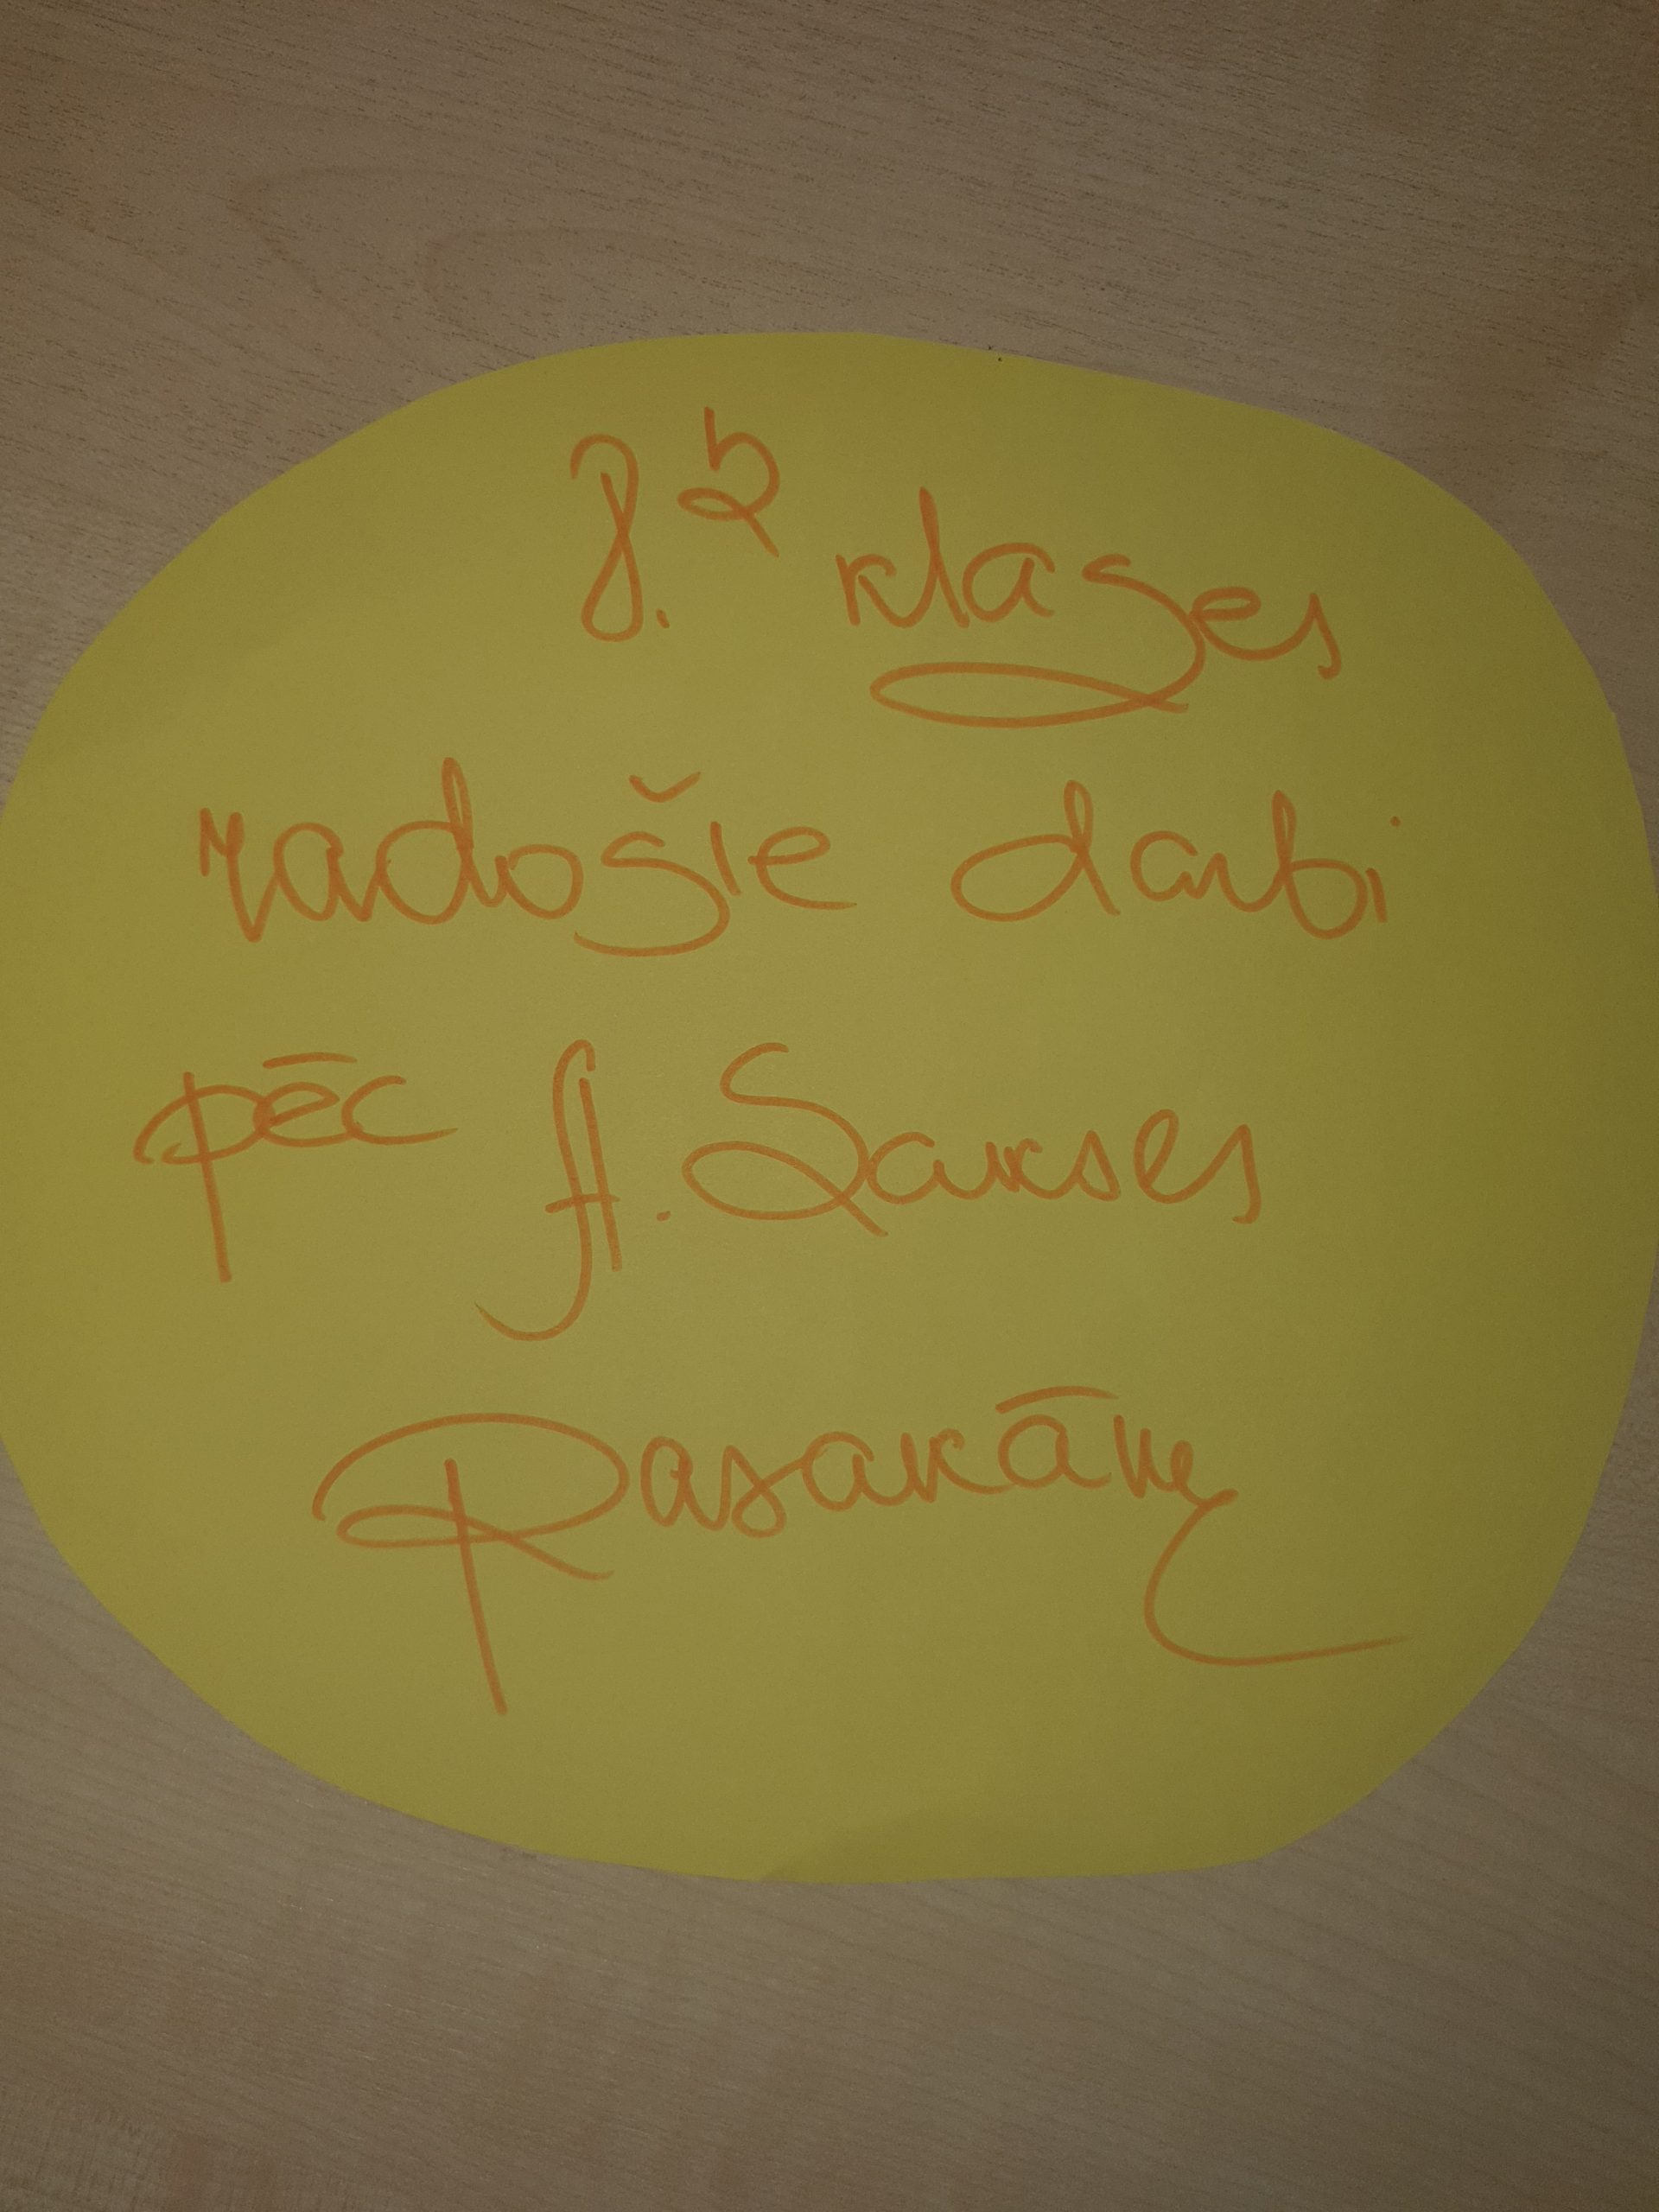 8.b klases
radošie darbi
pēc A. Sakses
Pasakām